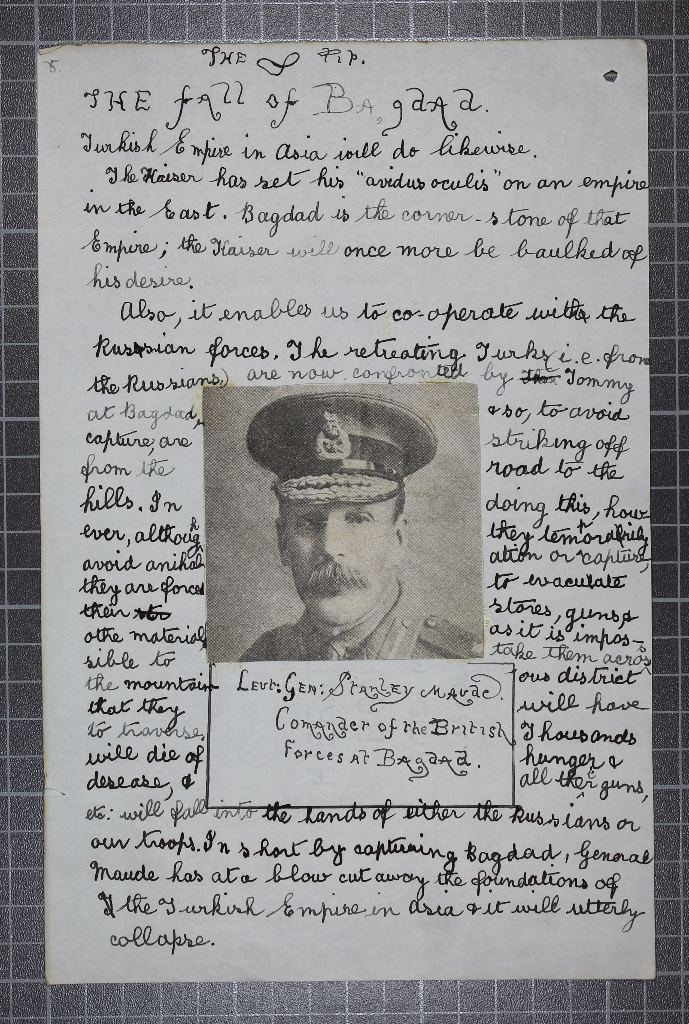 5.
THE TIP.
THE fAll of BAgdAd.
Turkish Empire in Asia will do likewise.
The Kaiser has set his "avidus oculis" on an empire
in the East. Bagdad is the corner-stone of that
Empire; the Kaiser will once more be baulked of
his desire.
Also, it enables us to co-operate with the
Russian forces. The retreating Turks (i.e. from
the Russians) are now confronted by Tommy
at Bagdad, & so, to avoid
capture, are striking off
from the road to the
hills. In doing this, how
ever, although they temorarily
avoid anihalation or capture,
they are forced to evacuate
their stores, guns, &
othe material as it is impos-
sible to take them across
the mountainous district
that they will have
to traverse. Thousands
will die of hunger &
desease, & all their guns,
etc: will fall into the hands of either the Russians or
our troops. In short by capturing Bagdad, General
Maude has at a blow cut away the foundations of
the Turkish Empire in Asia & it will utterly
collapse.
Leut: Gen: Stanley Maude.
Comander of the British
Forces At BAgdAd.